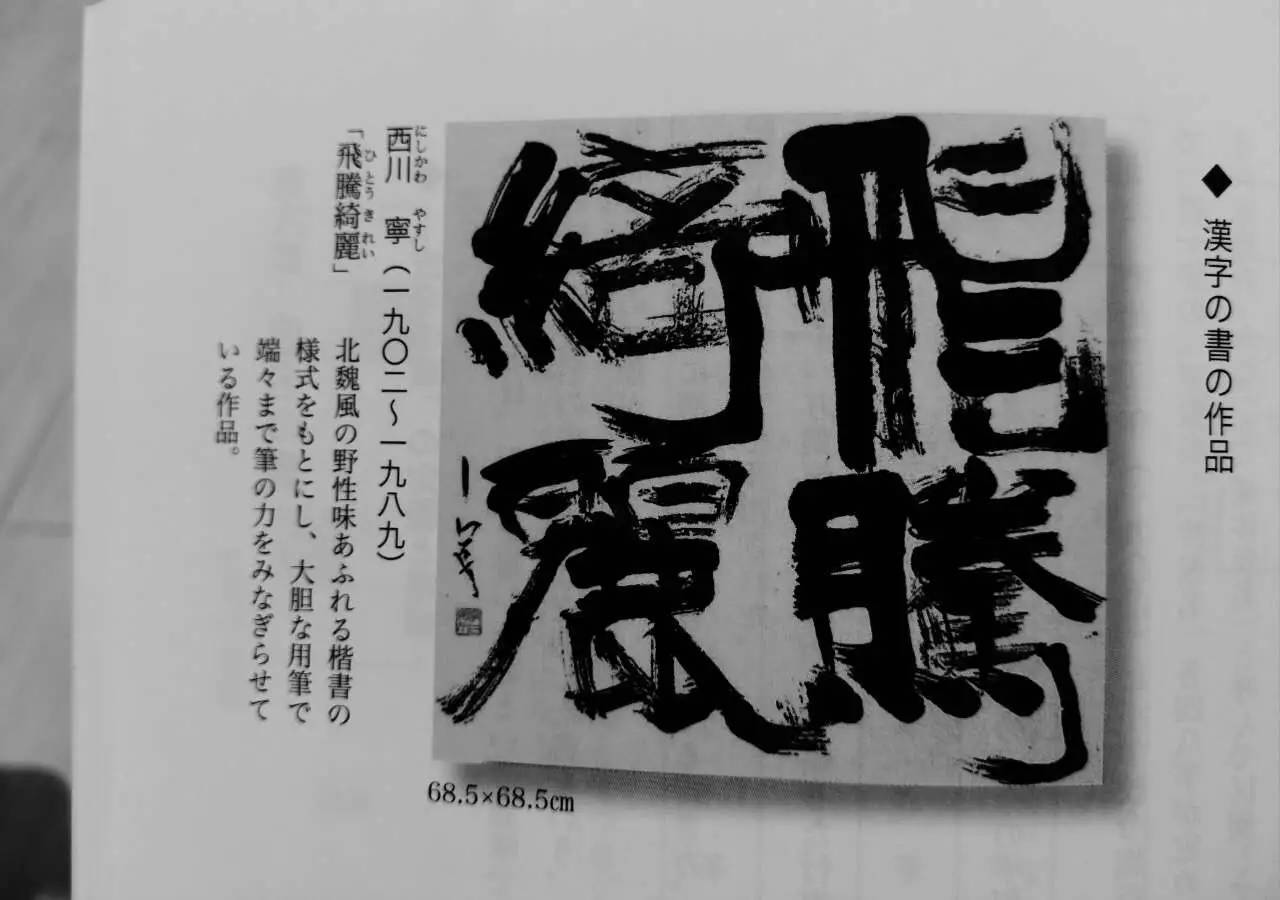 ◆ 漢字の書の作品
飛騰
綺麗
西川 寧（一九〇二〜一九八九）
にしかわ やすし
「飛騰綺麗」
ひとうきれい
北魏風の野性味あふれる楷書の
様式をもとにし、大胆な用筆で
端々まで筆の力をみなぎらせて
いる作品。
68.5×68.5cm